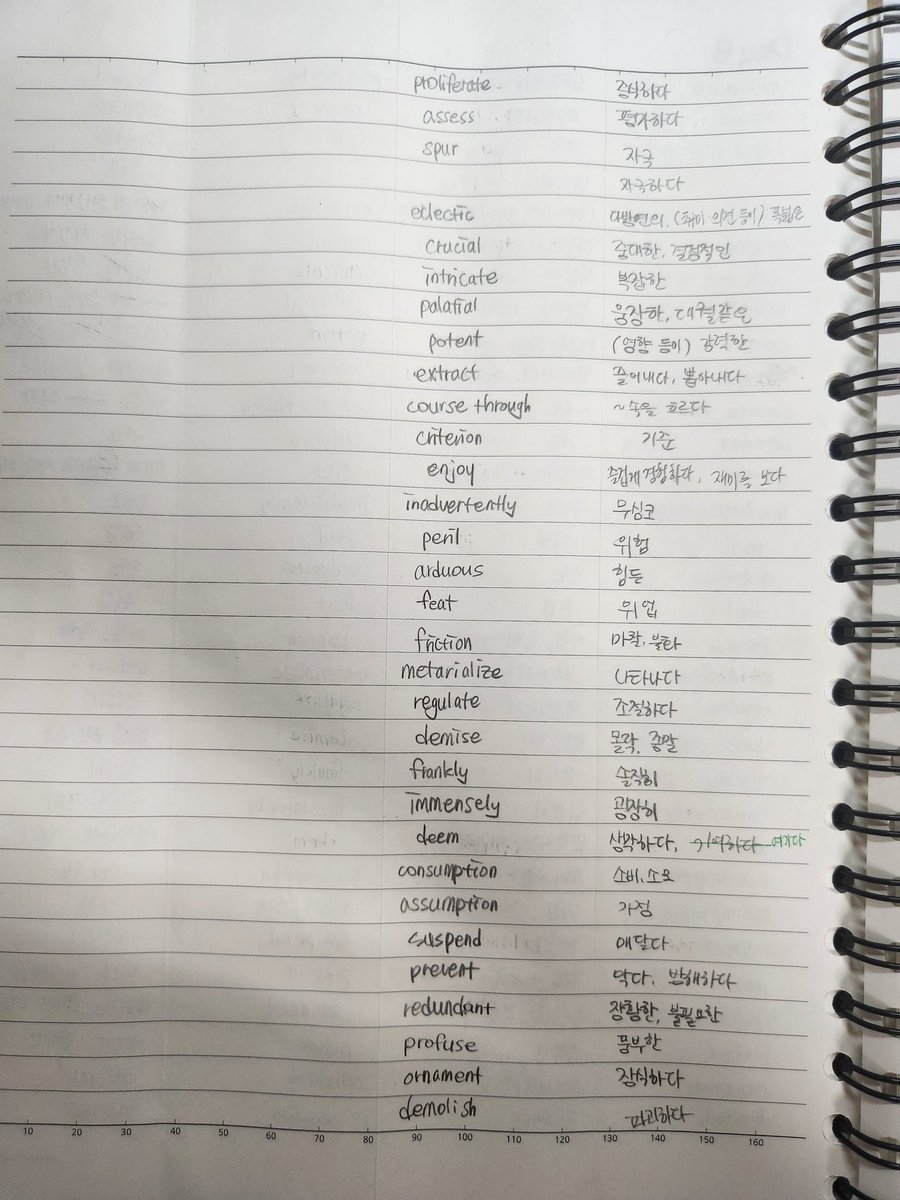 proliferate 증식하다
assess 평가하다
spur 자극
자극하다
eclectic 다방면의, (취미 의견 등이) 폭넓은
crucial 중대한, 결정적인
intricate 복잡한
palatial 웅장한, 대궐같은
potent (영향 등이) 강력한
extract 끌어내다, 뽑아내다
course through ~속을 흐르다
criterion 기준
enjoy 즐겁게 경험하다, 재미를 보다
inadvertently 무심코
peril 위험
arduous 힘든
feat 위업
friction 마찰, 불화
metarialize 나타나다
regulate 조절하다
demise 몰락, 종말
frankly 솔직히
immensely 굉장히
deem 생각하다, 기여하다 여기다
consumption 소비, 소모
assumption 가정
suspend 매달다
prevent 막다, 방해하다
redundant 장황한, 불필요한
profuse 풍부한
ornament 장식하다
demolish 파괴하다
10 20 30 40 50 60 70 80 90 100 110 120 130 140 150 160